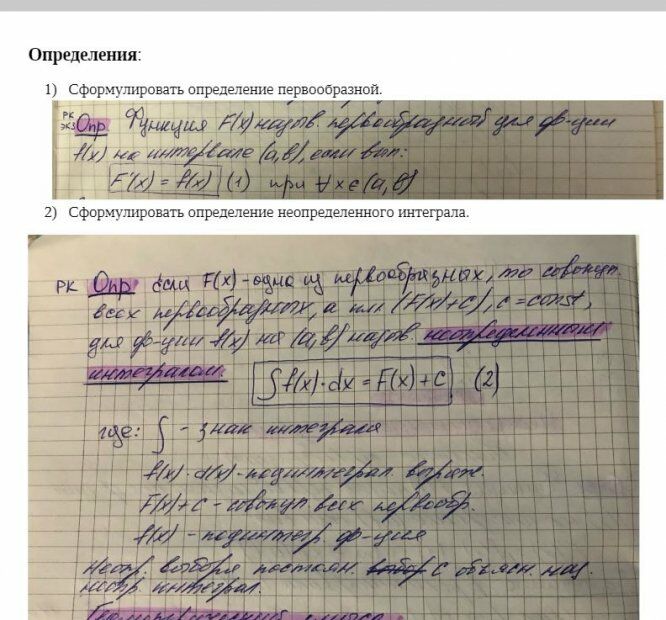 Определения:
1) Сформулировать определение первообразной.
РК
ЭКЗ Опр Функция F(x) назыв. первообразной для ф-ции
f(x) на интервале (a,b), если вып:
F'(x) = f(x) (1) при ∀x∈(a,b)
2) Сформулировать определение неопределенного интеграла.
РК Опр если F(x) - одна из первообразных, то совокуп.
всех первообразных, а или (F(x)+C), c = const,
для ф-ции f(x) на (a,b) назыв. неопределенным
интегралом.
∫f(x)·dx = F(x)+C (2)
где: ∫ - знак интеграла
f(x)·d(x) - подинтеграл. выраж.
F(x)+C - совокуп всех первообр.
f(x) - подинтегр. ф-ция
выбора постоян. C объясн. наз.
интеграл.